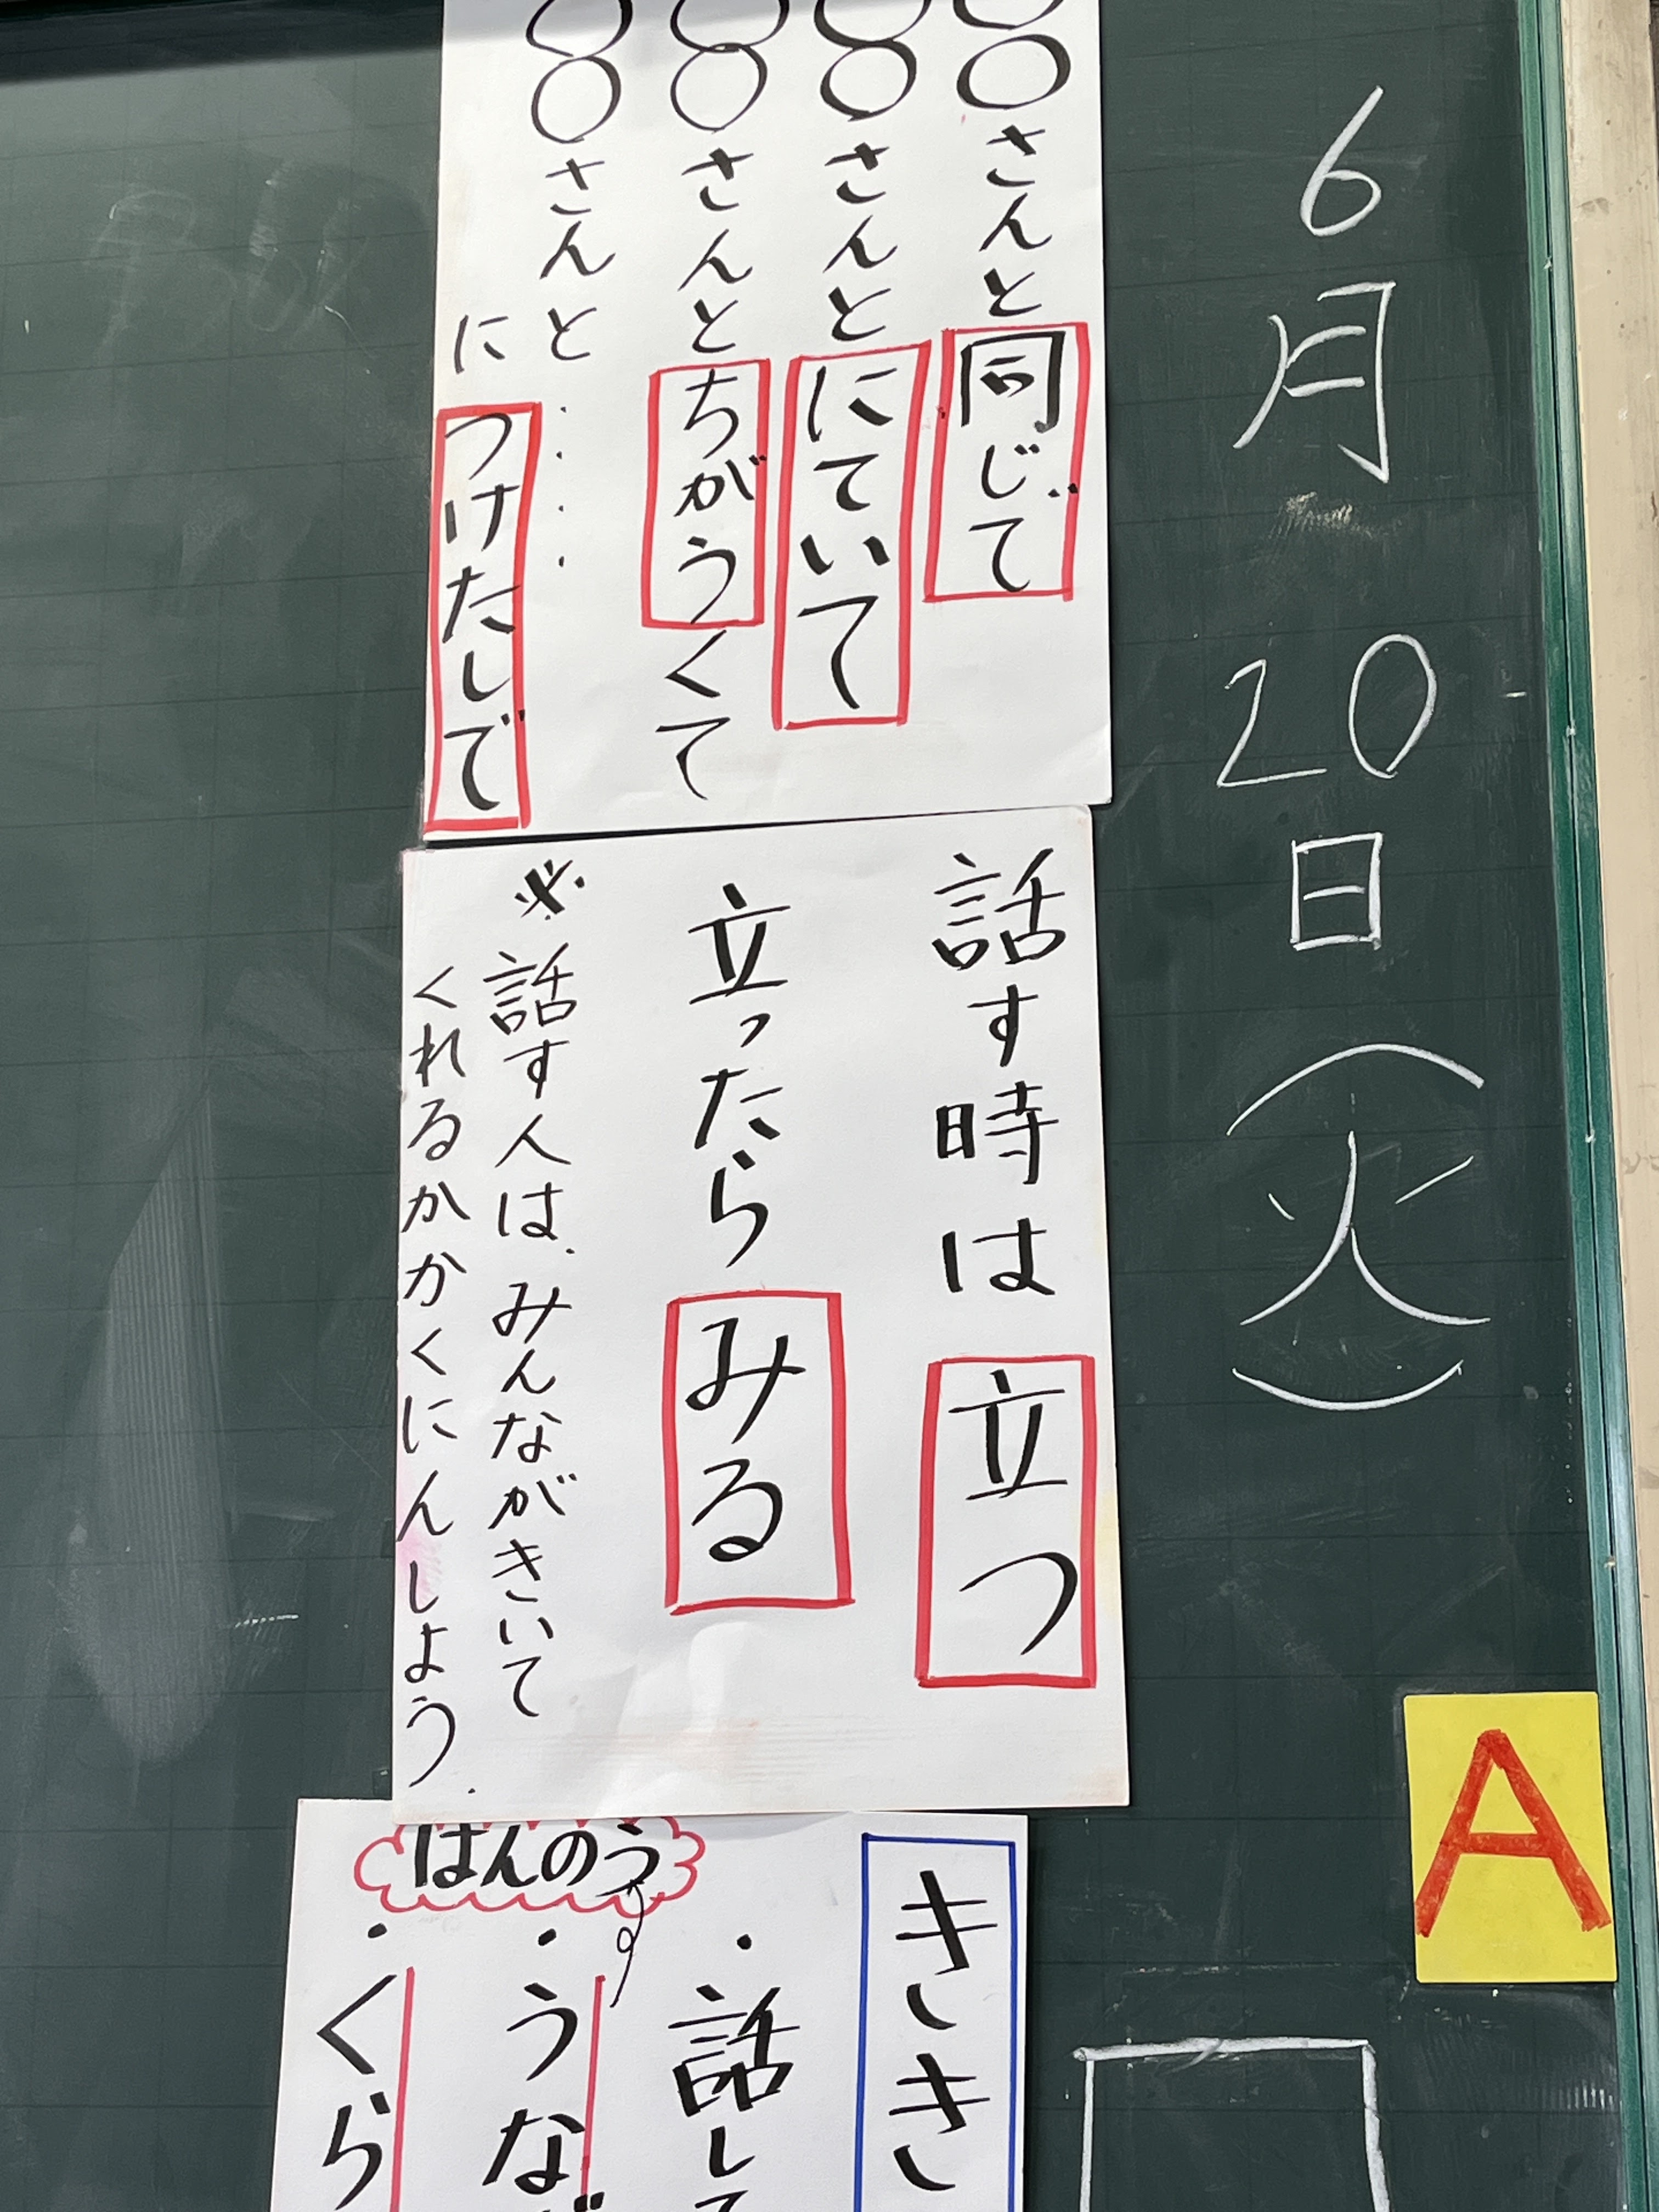 6月20日(火)
A
〇〇さんと同じで
〇〇さんとにていて
〇〇さんとちがうくて
〇〇さんと・・・・
につけたしで
話す時は立つ
立ったらみる
※話す人は、みんながきいて
くれるかかくにんしよう.
きき
・話して
はんのう
・うなが
・くら